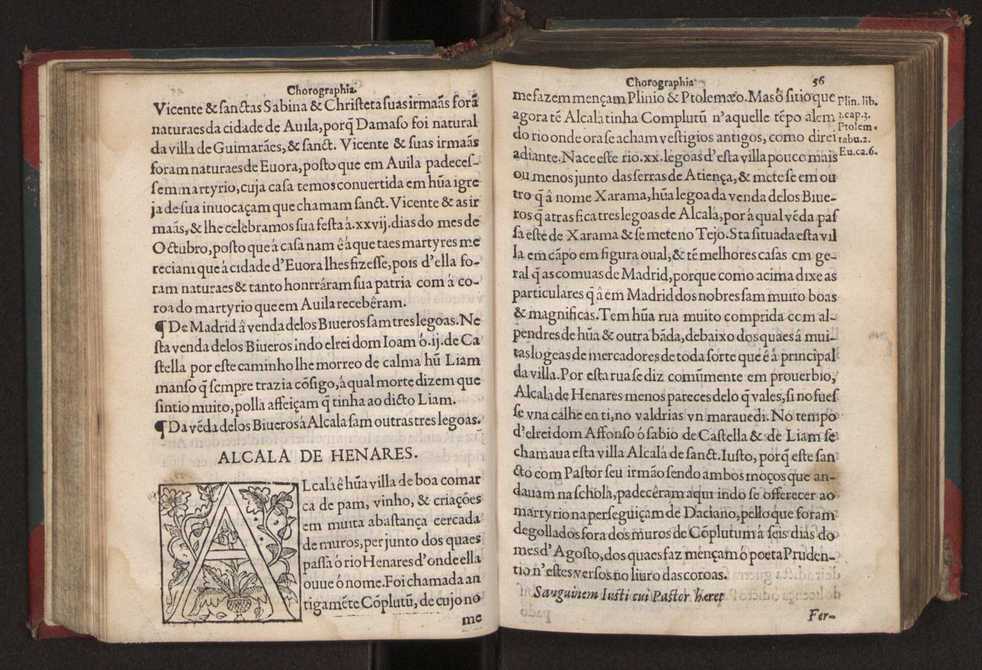 Chorographia.
Vicente & sanctas Sabina & Christeta suas irmaãs forã
naturaes da cidade de Auila, porq̃ Damaso foi natural
da villa de Guimarães, & sanct. Vicente & suas irmaãs
foram naturaes de Euora, posto que em Auila padeces-
sem martyrio, cuja casa temos conuertida em hũa igre
ja de sua inuocaçam que chamam sanct. Vicente & as ir
maãs, & lhe celebramos sua festa á. xxvij. dias do mes de
Octubro, posto que á casa nam ê á que taes martyres me
reciam que á cidade d'Euora lhes fizesse, pois d'ella fo-
ram naturaes & tanto honrráram sua patria com á co-
roa do martyrio que em Auila recebêram.
¶ De Madrid â venda delos Biueros sam tres legoas. Ne
sta venda delos Biueros indo elrei dom Ioam ó. ij. de Ca
stella por este caminho lhe morreo de calma hũ Liam
manso q̃ sempre trazia cõsigo, á qual morte dizem que
sintio muito, polla affeiçam q̃ tinha ao dicto Liam.
¶ Da vẽda delos Biueros à Alcala sam outras tres legoas.
ALCALA DE HENARES.
ALcala ê hũa villa de boa comar
ca de pam, vinho, & criações
em muita abastança cercada
de muros, per junto dos quaes
passa ó rio Henares d'onde ella
ouue ó nome. Foi chamada an
tigamẽte Cõplutũ, de cujo nó
me
Chorographia 56
me fazem mençam Plinio & Ptolemæo. Mas ó sitio que
agora tẽ Alcala tinha Complutũ n'aquelle tẽpo alem
do rio onde ora se acham vestigios antigos, como direi
adiante. Nace este rio. xx. legoas d'esta villa pouco mais
ou menos junto das serras de Atiença, & mete se em ou
tro q̃ â nome Xarama, hũa legoa da venda delos Biue-
ros q̃ atras fica tres legoas de Alcalá, por á qual vẽda pas
sa este de Xarama & se mete no Tejo. Sta situada esta vil
la em cãpo em figura oual, & tẽ melhores casas em ge-
ral q̃ as comuas de Madrid, porque como acima dixe as
particulares q̃ â em Madrid dos nobres sam muito boas
& magnificas. Tem hũa rua muito comprida com al-
pendres de hũa & outra bãda, debaixo dos quaes â mui-
tas logeas de mercadores de toda sorte que é á principal
da villa. Por esta rua se diz comũmente em prouerbio,
Alcala de Henares menos pareces delo q̃ vales, si no fues
se vna calhe en ti, no valdrias vn marauedi. No tempo
d'elrei dom Affonso ó sabio de Castella & de Liam se
chamaua esta villa Alcalá de sanct. Iusto, porq̃ este san
cto com Pastor seu irmão sendo ambos moços que an-
dauam na schola, padecêram aqui indo se offerecer ao
martyrio na perseguiçam de Daciano, pello que foram
degollados fora dos muros de Cõplutum á seis dias do
mes d'Agosto, dos quaes faz mençam ó poeta Pruden-
tio n'estes versos no liuro das coroas.
Sanguinem Iusti cui Pastor hæret
Fer-
Plin. lib.
3. cap. 3.
Ptolem.
tabu. 2.
Eu. ca. 6.